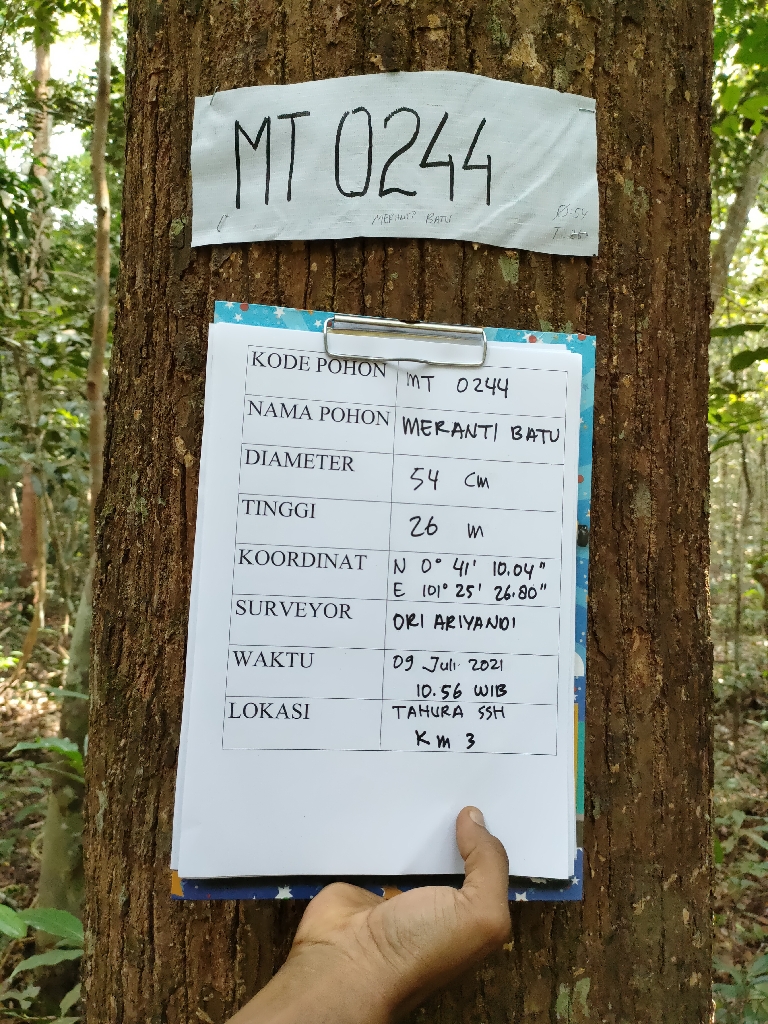 MT 0244
MERANTI BATU
KODE POHON MT 0244
NAMA POHON MERANTI BATU
DIAMETER 54 cm
TINGGI 26 m
KOORDINAT N 0° 41' 10.04"
E 101° 25' 26.80"
SURVEYOR ORI ARIYANDI
WAKTU 09 Juli 2021
10.56 WIB
LOKASI TAHURA SSH
Km 3